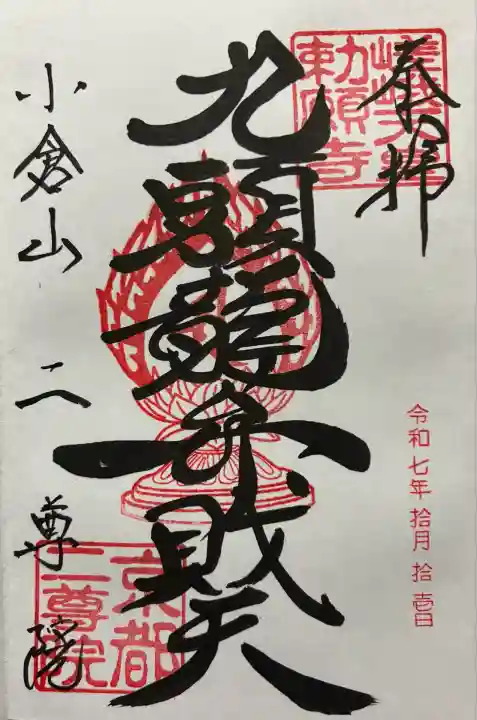 奉拝
嵯峨天皇
勅願寺
令和七年拾月拾壱日
九頭龍弁財天
小倉山 二尊院
京都
二尊院